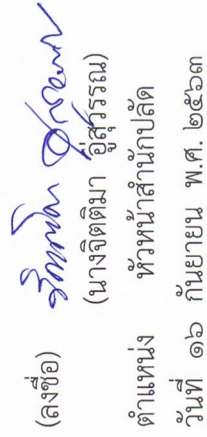 (ลงชื่อ)
(นางจิตติมา อู่สุวรรณ)
ตำแหน่ง หัวหน้าสำนักปลัด
วันที่ ๑๖ กันยายน พ.ศ. ๒๕๖๓